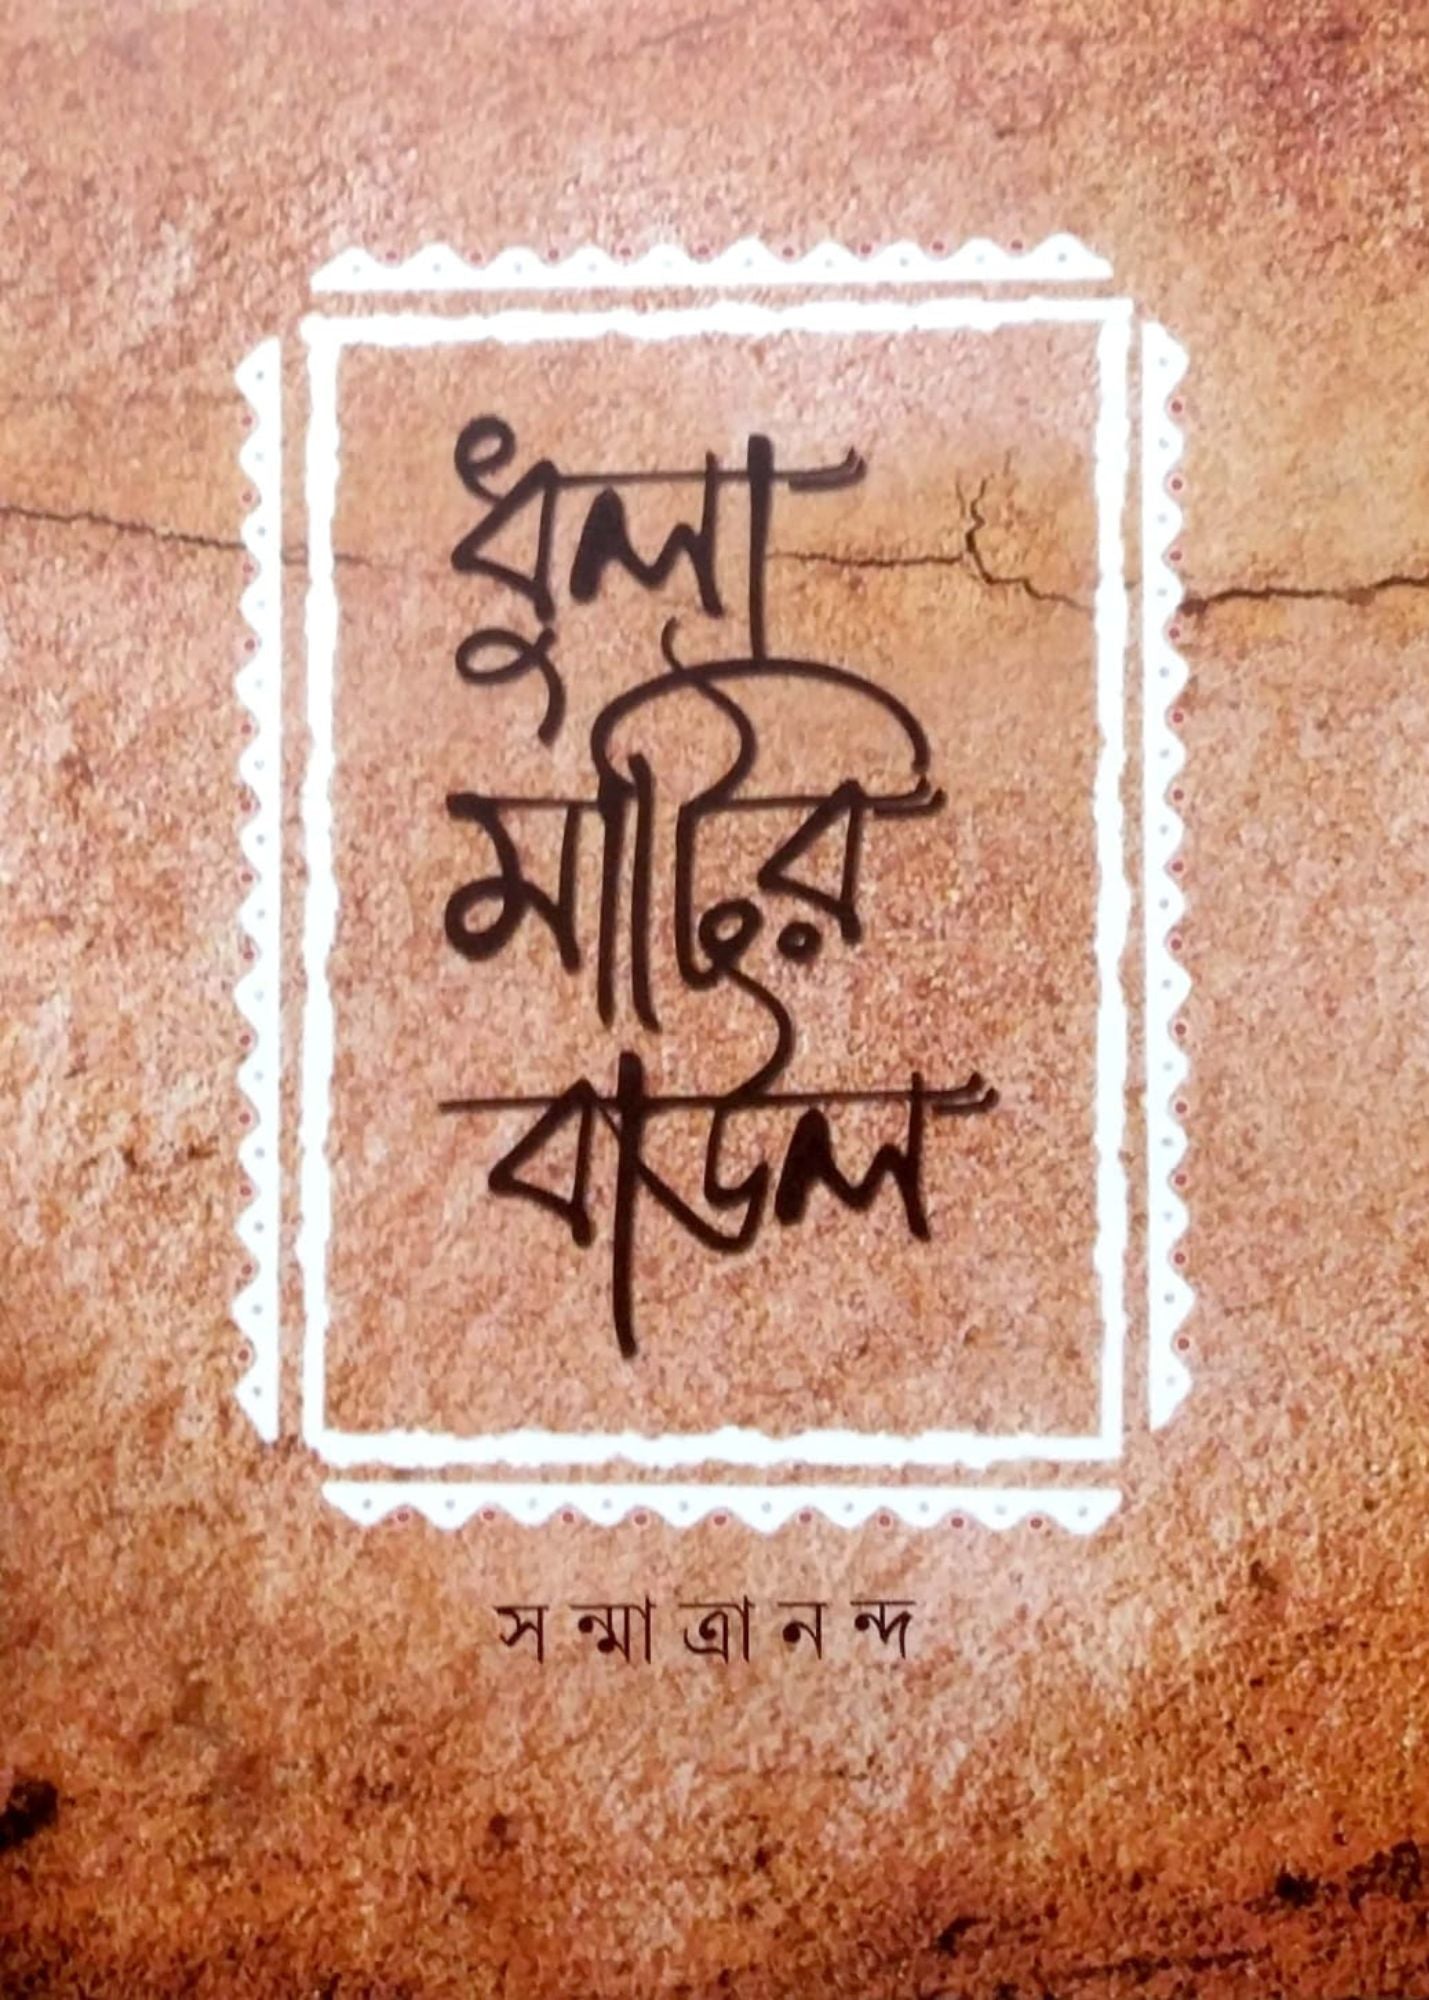 ধুলা
মাটির
বাউল
সন্মাত্রানন্দ